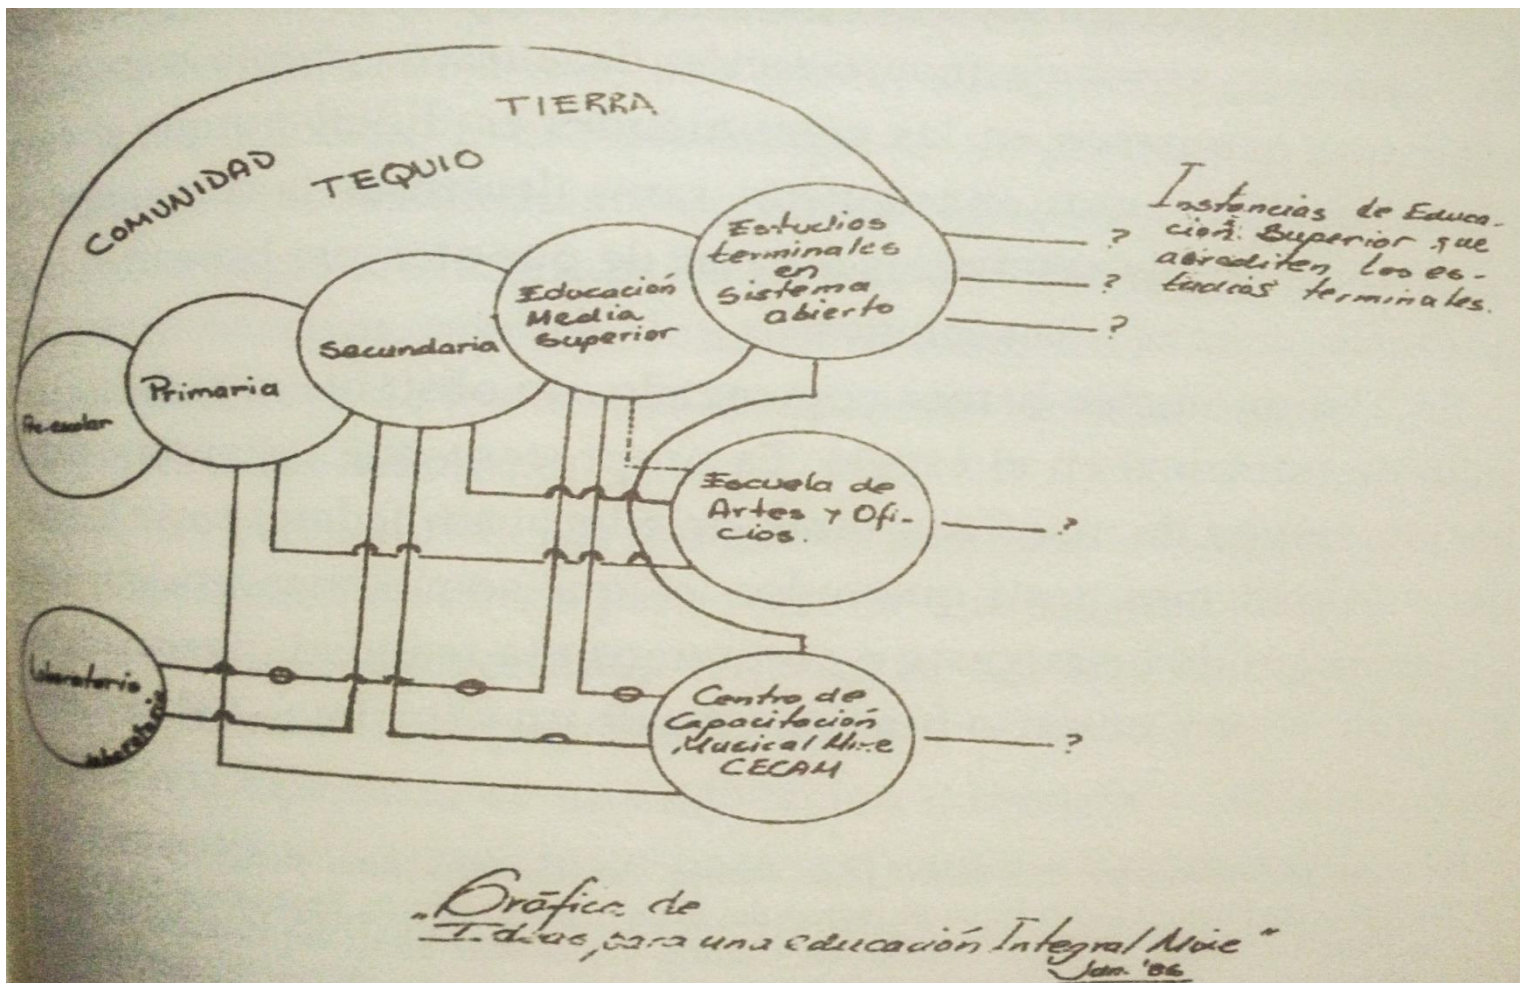 TIERRA
COMUNIDAD
TEQUIO
Pre-escolar
Primaria
Secundaria
Educación
Media
Superior
Estudios
terminales
en
Sistema
abierto
?
?
?
Instancias de Educa-
ción Superior que
acrediten los es-
tudios terminales.
Escuela de
Artes y Ofi-
cios.
?
Laboratorio
Laboratorio
Centro de
Capacitación
Musical Mixe
CECAM
?
"Gráfica de
Ideas para una educación Integral Mixe"
Jan. '86